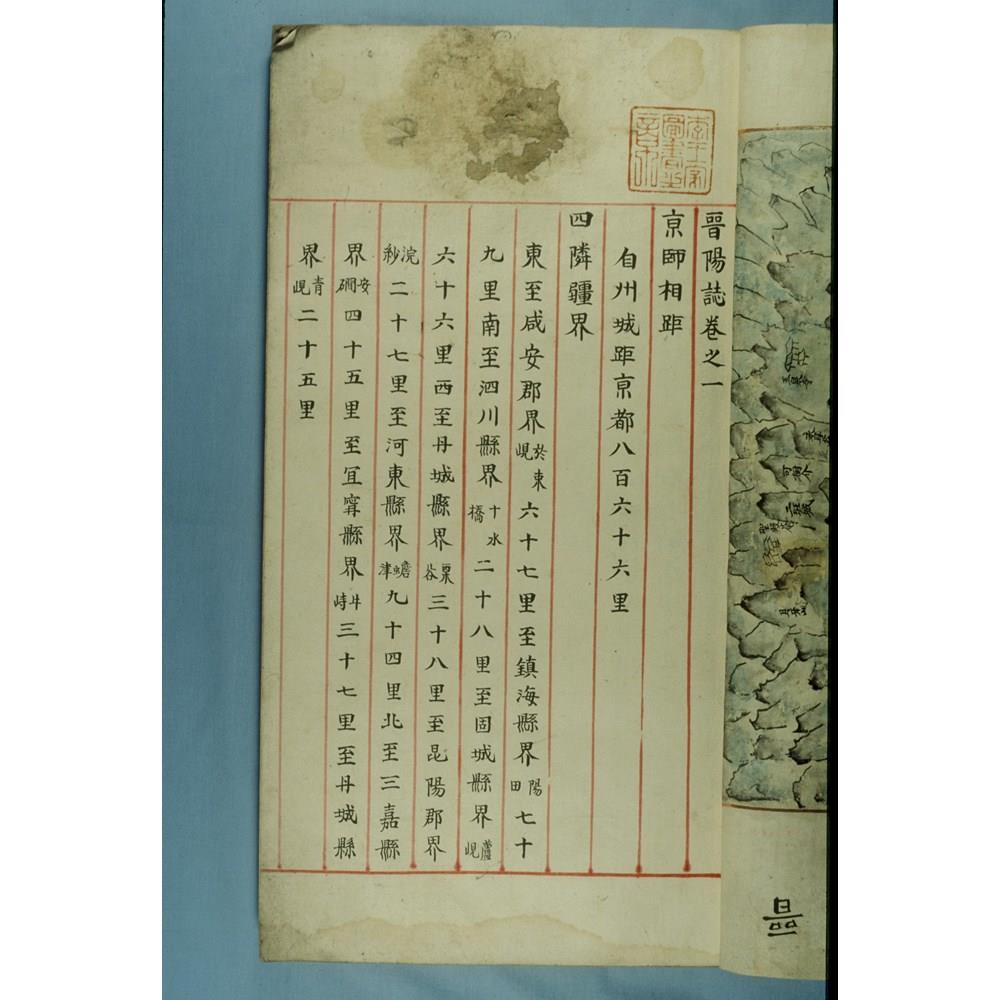 晉陽誌卷之一
亰師相距
自州城距亰都八百六十六里
四隣疆界
東至咸安郡界於東峴六十七里至鎭海縣界陽田七十
九里南至泗川縣界十水橋二十八里至固城縣界蘆峴
六十六里西至丹城縣界栗谷三十八里至昆陽郡界
浣紗二十七里至河東縣界蟾津九十四里北至三嘉縣
界安磵四十五里至宜寧縣界斗峙三十七里至丹城縣
界青峴二十五里
李王家圖書之章